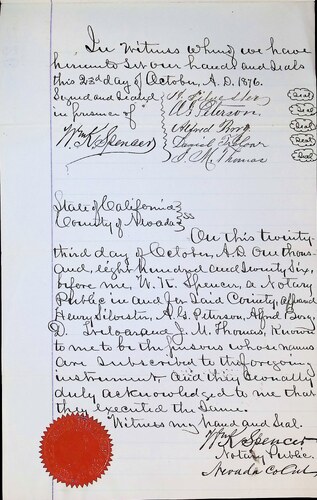 In Witness Whereof, we have
hereunto set our hands and Seals
this 23d day of October, A.D. 1876.
Signed and Sealed
in presence of
Wm K Spencer
A. G. Peterson. (Seal)
Alfred Borg (Seal)
Daniel Treloar (Seal)
J. M. Thomas (Seal)
State of California
County of Nevada } SS
On this twenty
third day of October, A.D. One thous-
and, eight hundred and Seventy Six,
before me, W. K. Spencer, a Notary
Public in and for Said County, appeared
Henry Silvester, A. G. Peterson, Alfred Borg,
D. Treloar and J. M. Thomas, Known
to me to be the persons whose names
are subscribed to the foregoing
instrument, and they severally
duly acknowledged to me that
they executed the same.
Witness my hand and Seal.
Wm K Spencer
Notary Public.
Nevada Co Cal